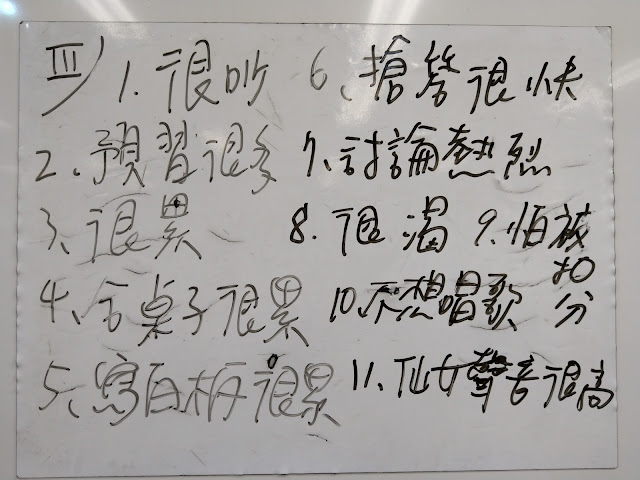 III 1. 很吵
2. 預習很多
3、很累
4、合桌子很累
5、寫白板很累
6、搶答很快
7、討論熱烈
8. 很渴
9. 怕被扣分
10. 不想唱歌
11、仙女聲音很高